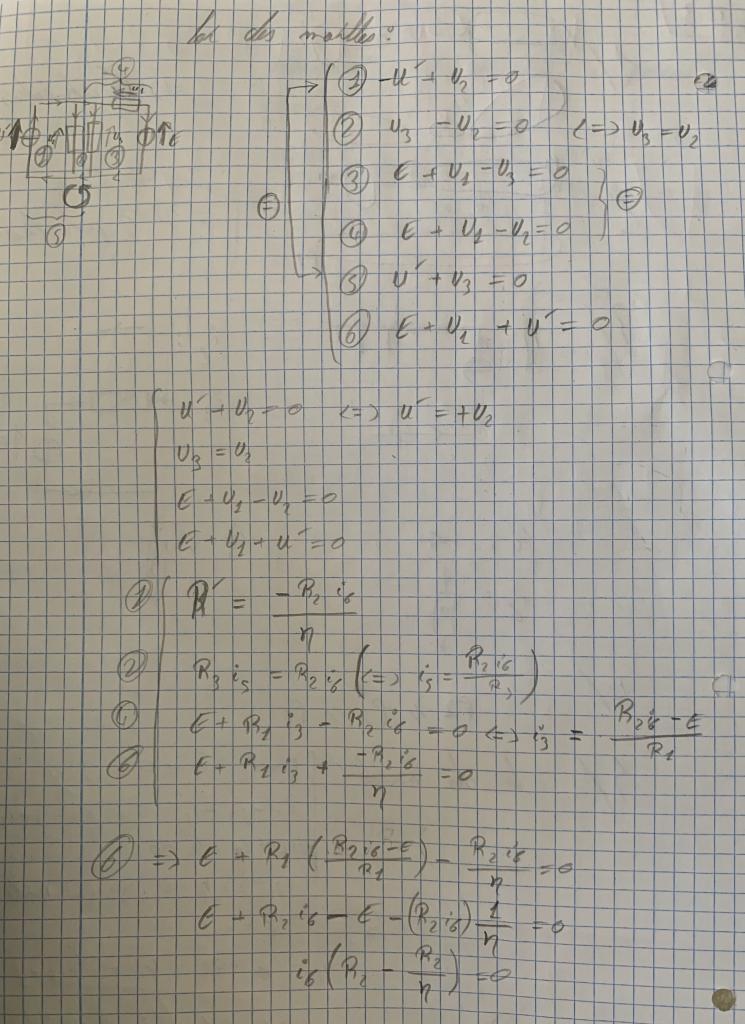 Loi des mailles:
① -U' + U₂ = 0
② U₃ - U₂ = 0 <=> U₃ = U₂
③ E + U₁ - U₃ = 0
④ E + U₁ - U₂ = 0
⑤ U' + U₃ = 0
⑥ E + U₁ + U' = 0
U' + U₂ = 0 <=> U' = +U₂
U₃ = U₂
E + U₁ - U₂ = 0
E + U₁ + U' = 0
① R' = -R₂ i₆ / η
② R₃ i₅ = R₂ i₆ (<=> i₅ = R₂ i₆ / R₃)
E + R₁ i₃ - R₂ i₆ = 0 <=> i₃ = R₂ i₆ - E / R₁
⑥ E + R₁ i₃ + -R₂ i₆ / η = 0
⑥ => E + R₁ (R₂ i₆ - E / R₁) - R₂ i₆ / η = 0
E + R₂ i₆ - E - (R₂ i₆) 1/η = 0
i₆ (R₂ - R₂/η) = 0